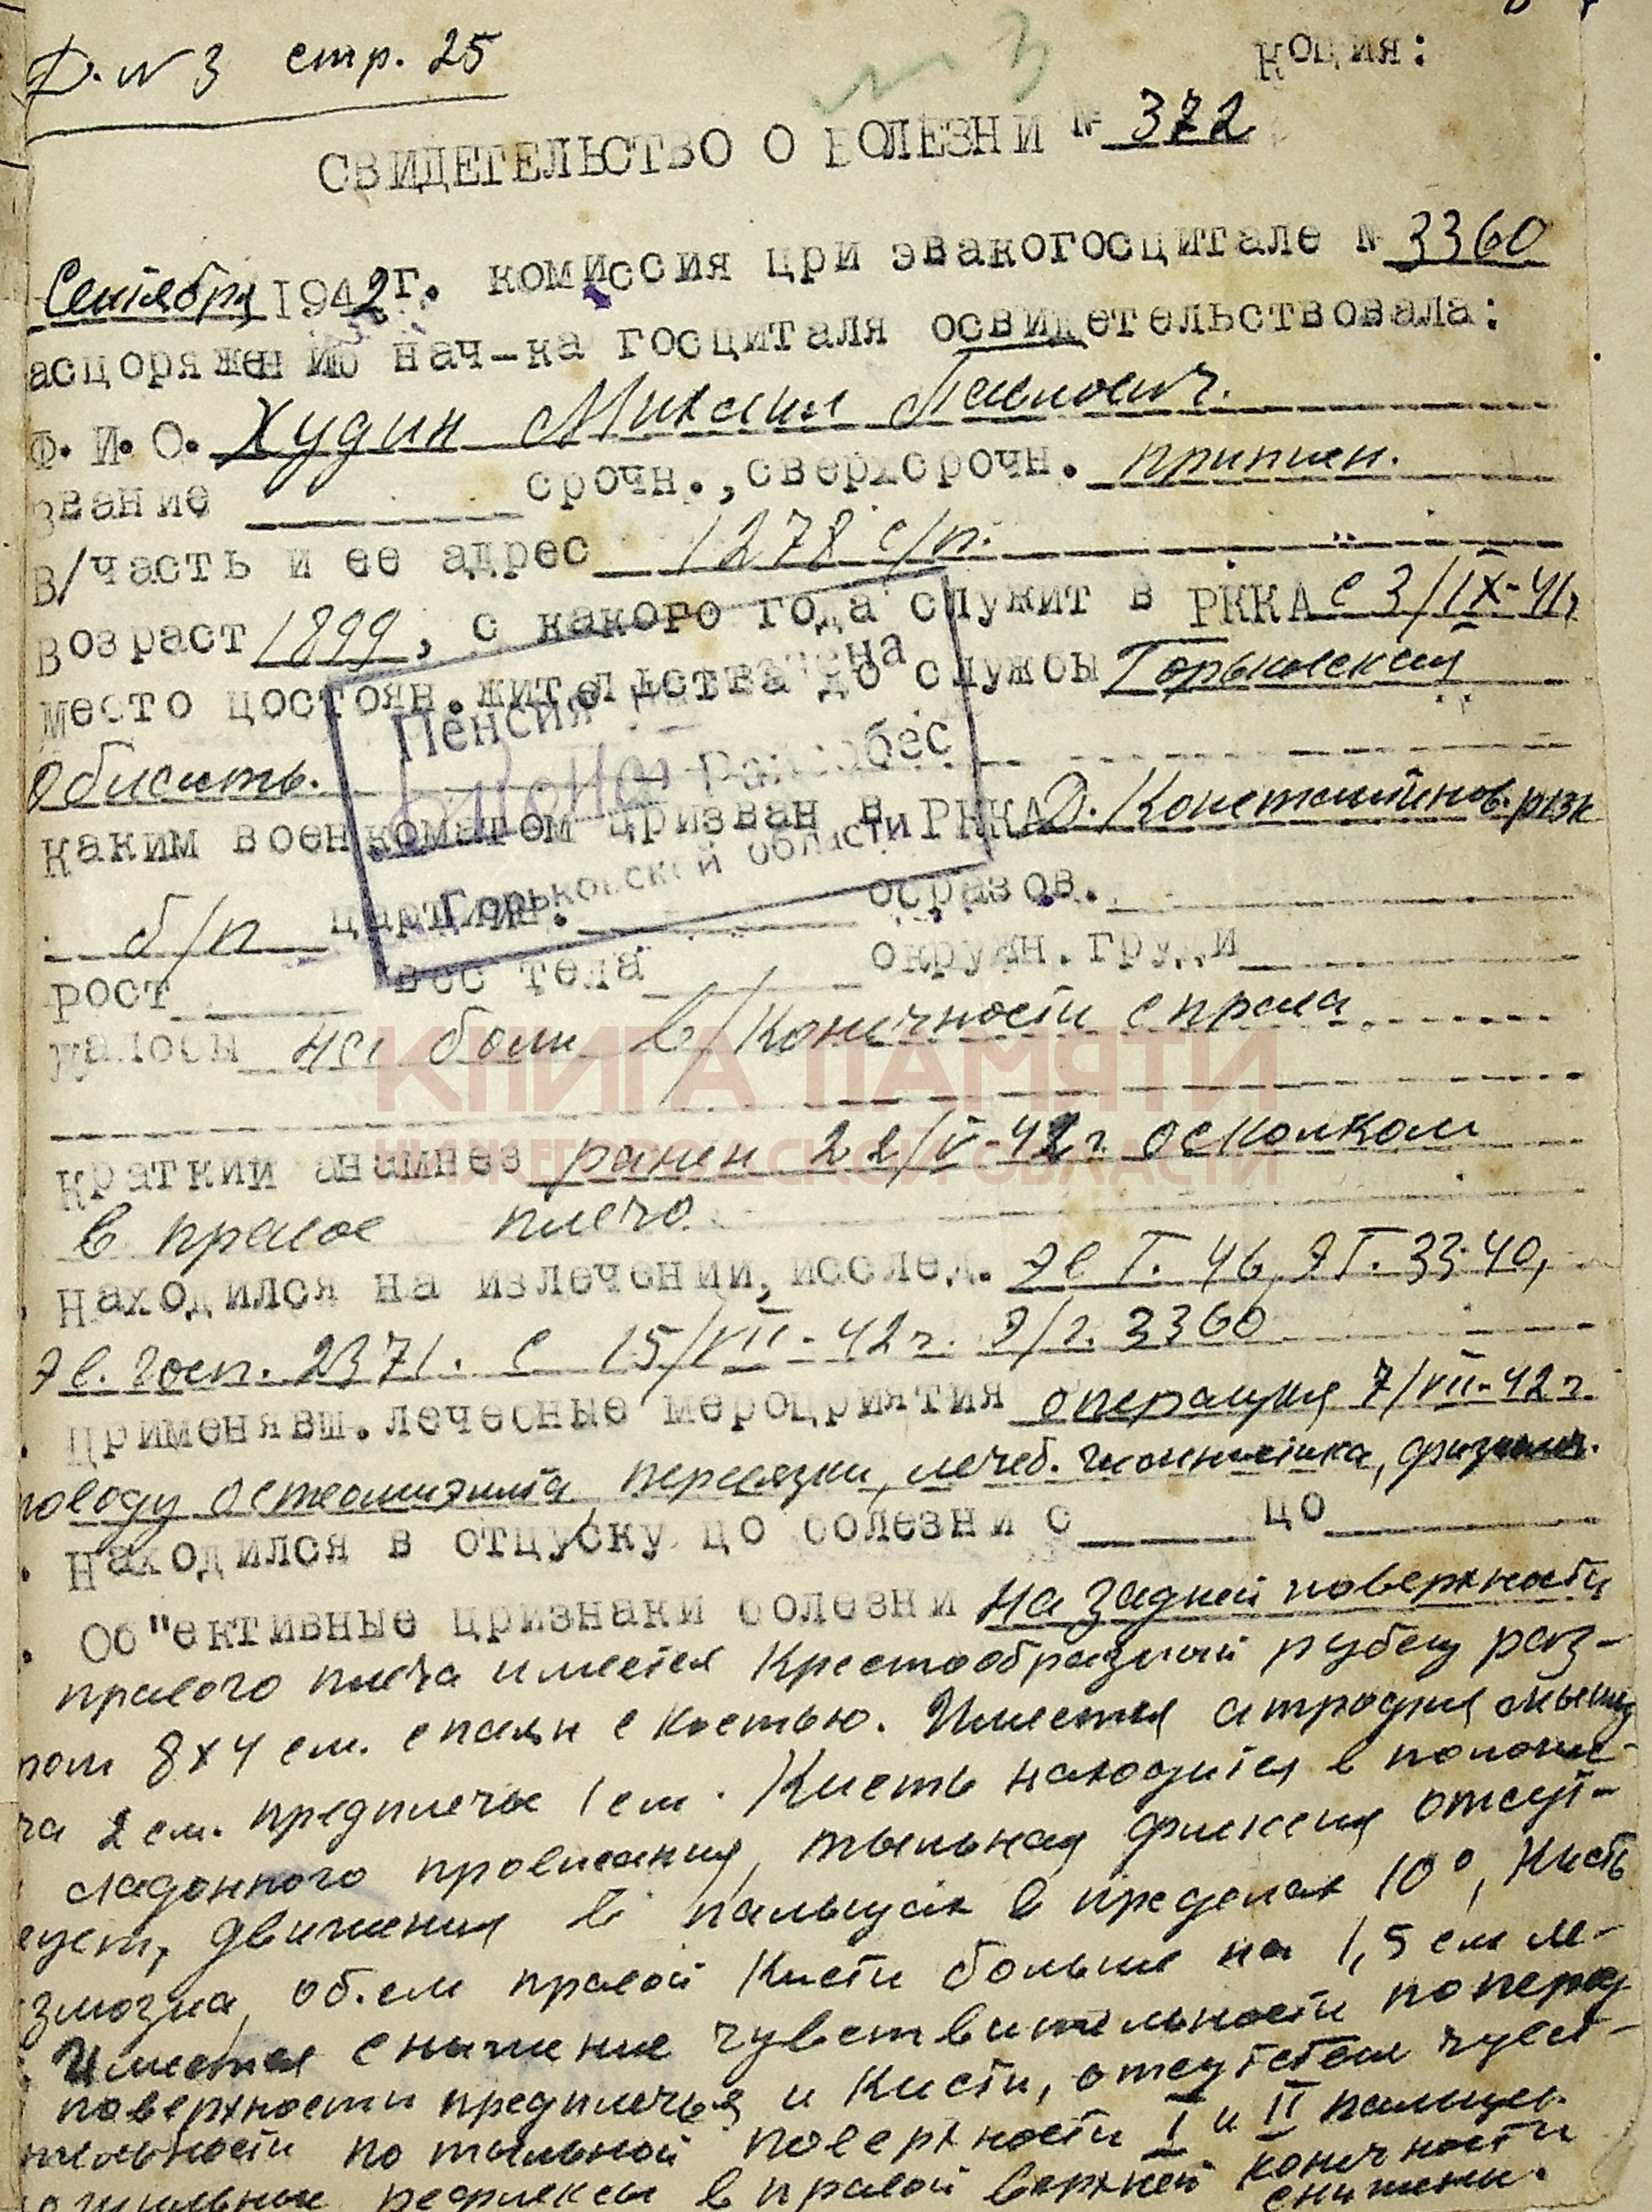 Д. № 3 стр. 25
№ 3
Копия:
СВИДЕТЕЛЬСТВО О БОЛЕЗНИ № 372
Сентября 1942 г. комиссия при эвакогоспитале № 3360
аспоряжению нач-ка госпиталя освидетельствовала:
Ф. И. О. Худин Михаил Павлович.
звание срочн., сверхсрочн. припис.
В/часть и ее адрес 1278 с/п.
возраст 1899, с какого года служит в РККА с 3/IX-41г
место постоян. жительства до службы Горьковская
область.
каким военкоматом призван в РККА Д. Константинов. рвк
б/п партийн. образов.
рост вес тела окружн. груди
Пенсия назначена
Райсобес
Горьковской области
жалобы на боли в/конечности справа
КНИГА ПАМЯТИ
НИЖЕГОРОДСКОЙ ОБЛАСТИ
краткий анамнез ранен 22/V-42 г. осколком
в правое плечо
Находился на излечении, исслед. Эв Г. 46, ЭГ. 33-40,
Эв. Госп. 2371. с 15/VII-42 г. Э/г. 3360
Применявш. лечебные мероприятия операция 7/VII-42 г.
поводу остеомиэлита, перевязки, лечеб. гимнастика,
Находился в отпуску по болезни с по
Об"ективные признаки болезни На задней поверхности
правого плеча имеется крестообразный рубец раз-
ром 8х4 см. спаян с костью. Имеется атрофия мышц
ча 2 см. предплечье 1 см. Кисть находится в положе-
ладонного провисания, тыльная флексия отсут-
вует, движения в пальцах в пределах 10°, Кисть
об.ем правой кисти больше на 1,5 см ле-
Имеется снижение чувствительности по перед
поверхности предплечья и кисти, отсутствие чувст-
тельности по тыльной поверхности I и II пальцев.
рефлексы в правой верхней конечности
снижены.